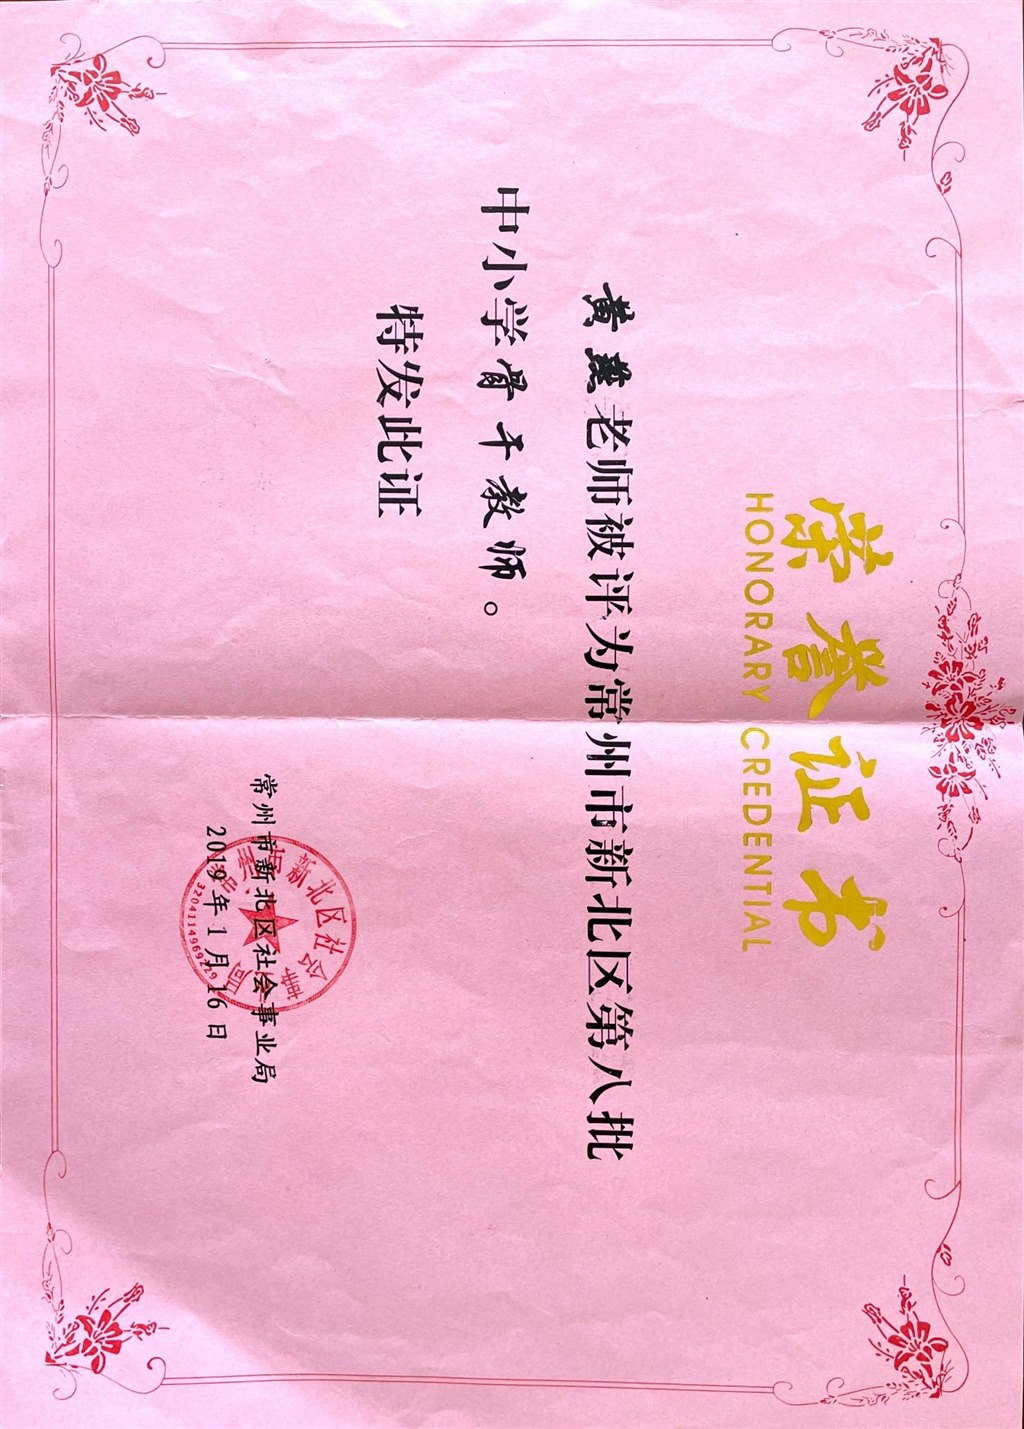 荣誉证书
HONORARY CREDENTIAL
黄 老师被评为常州市新北区第八批
中小学骨干教师。
特发此证
常州市新北区社会事业局
2019年1月16日
常州市新北区社会事业局
3204114969229